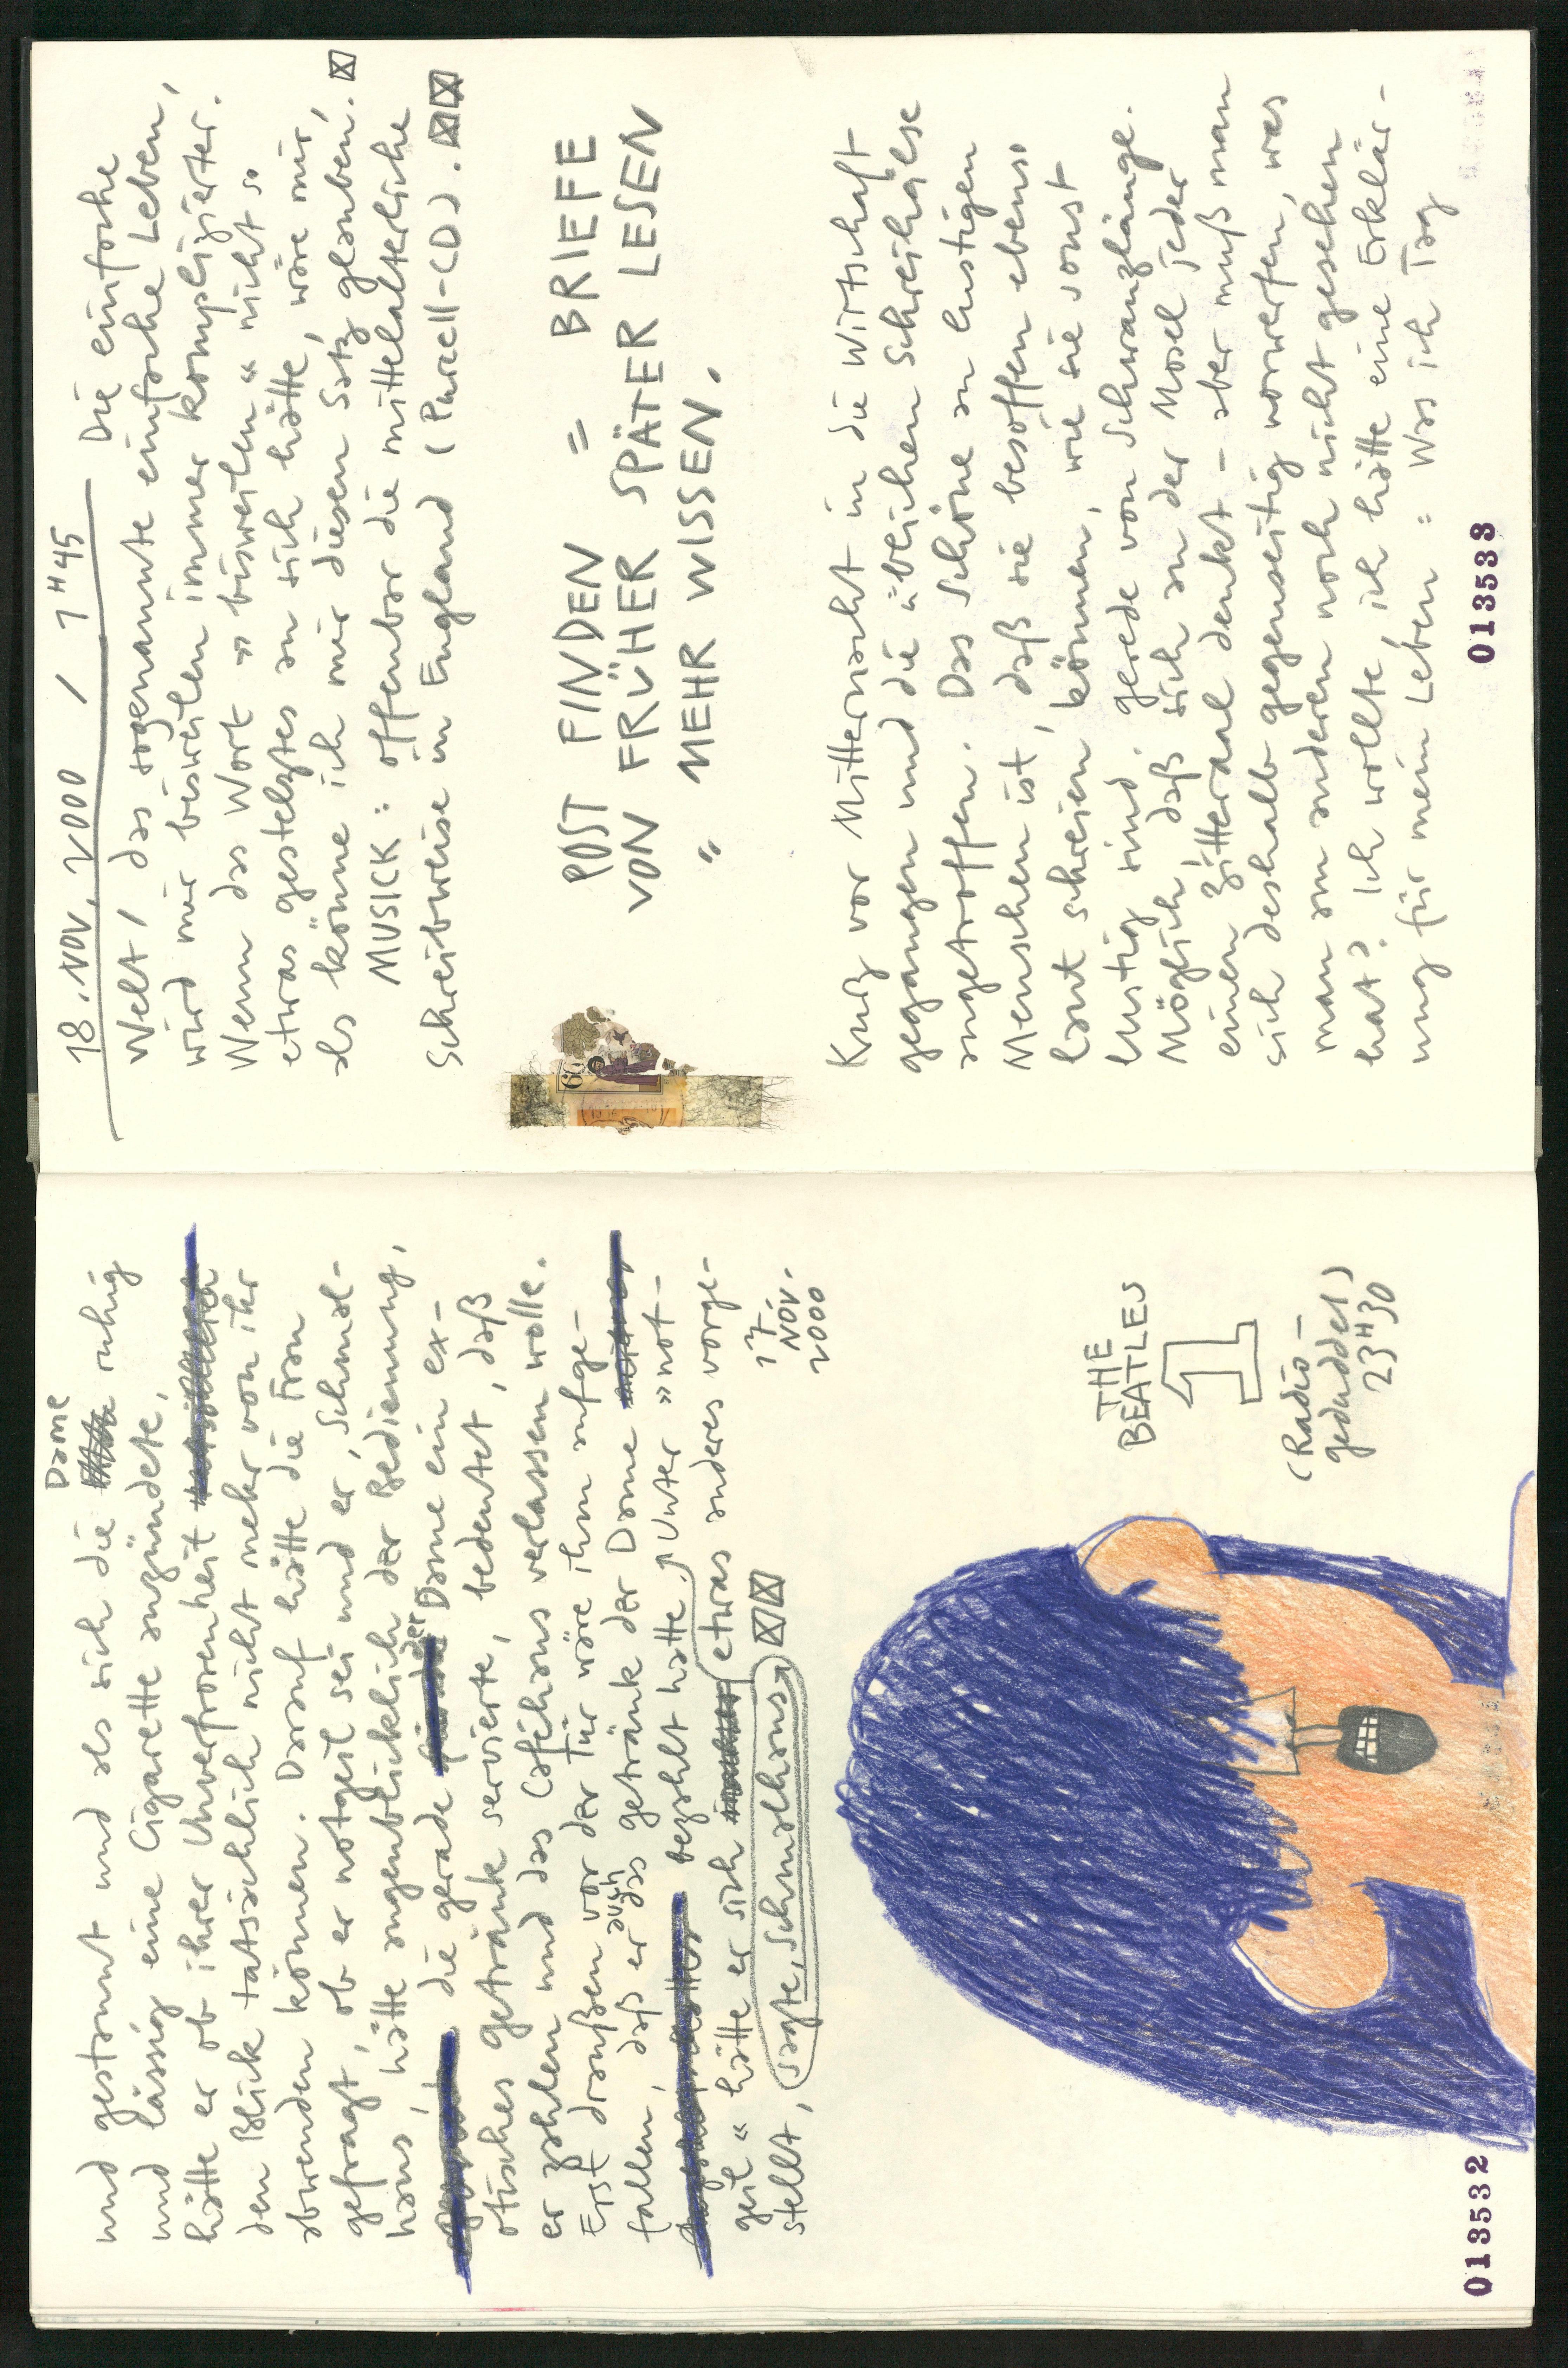 und gestaunt und als sich die Dame ruhig
und lässig eine Cigarette anzündete,
hätte er ob ihrer Unverfrorenheit
den Blick tatsächlich nicht mehr von ihr
abwenden können. Darauf hätte die Frau
gefragt, ob er notgeil sei und er, Schmal-
haus, hätte augenblicklich der Bedienung,
die gerade der Dame ein ex-
otisches Getränk servierte, bedeutet, daß
er zahlen und das Caféhaus verlassen wolle.
Erst draußen vor der Tür wäre ihm aufge-
fallen, daß er auch das Getränk der Dame
bezahlt hatte. Unter »not-
geil« hätte er sich etwas anderes vorge-
stellt, sagte, Schmalhaus.
17.
NOV.
2000
THE
BEATLES
1
(Radio-
geduddel)
23H30
013532
18. NOV. 2000 / 1H45 Die einfache
Welt / das sogenannte einfache Leben,
wird mir bisweilen immer komplizierter.
Wenn das Wort »bisweilen« nicht so
etwas gestelztes an sich hätte, wäre mir,
als könne ich mir diesen Satz glauben.
MUSICK: offenbar die mittelalterliche
Schreibweise in England (Purcell-CD).
POST FINDEN = BRIEFE
VON FRÜHER SPÄTER LESEN
" MEHR WISSEN.
60
Kurz vor Mitternacht in die Wirtschaft
gegangen und die üblichen Schreihälse
angetroffen. Das Schöne an lustigen
Menschen ist, daß sie besoffen ebenso
laut schreien können, wie sie sonst
lustig sind. Gerede von Schwanzlänge.
Möglich, daß sich an der Mosel jeder
einen Zitteraal denkt – aber muß man
sich deshalb gegenseitig vorwerfen, was
man am anderen noch nicht gesehen
hat? Ich wollte, ich hätte eine Erklär-
ung für mein Leben: Was ich Tag
013533